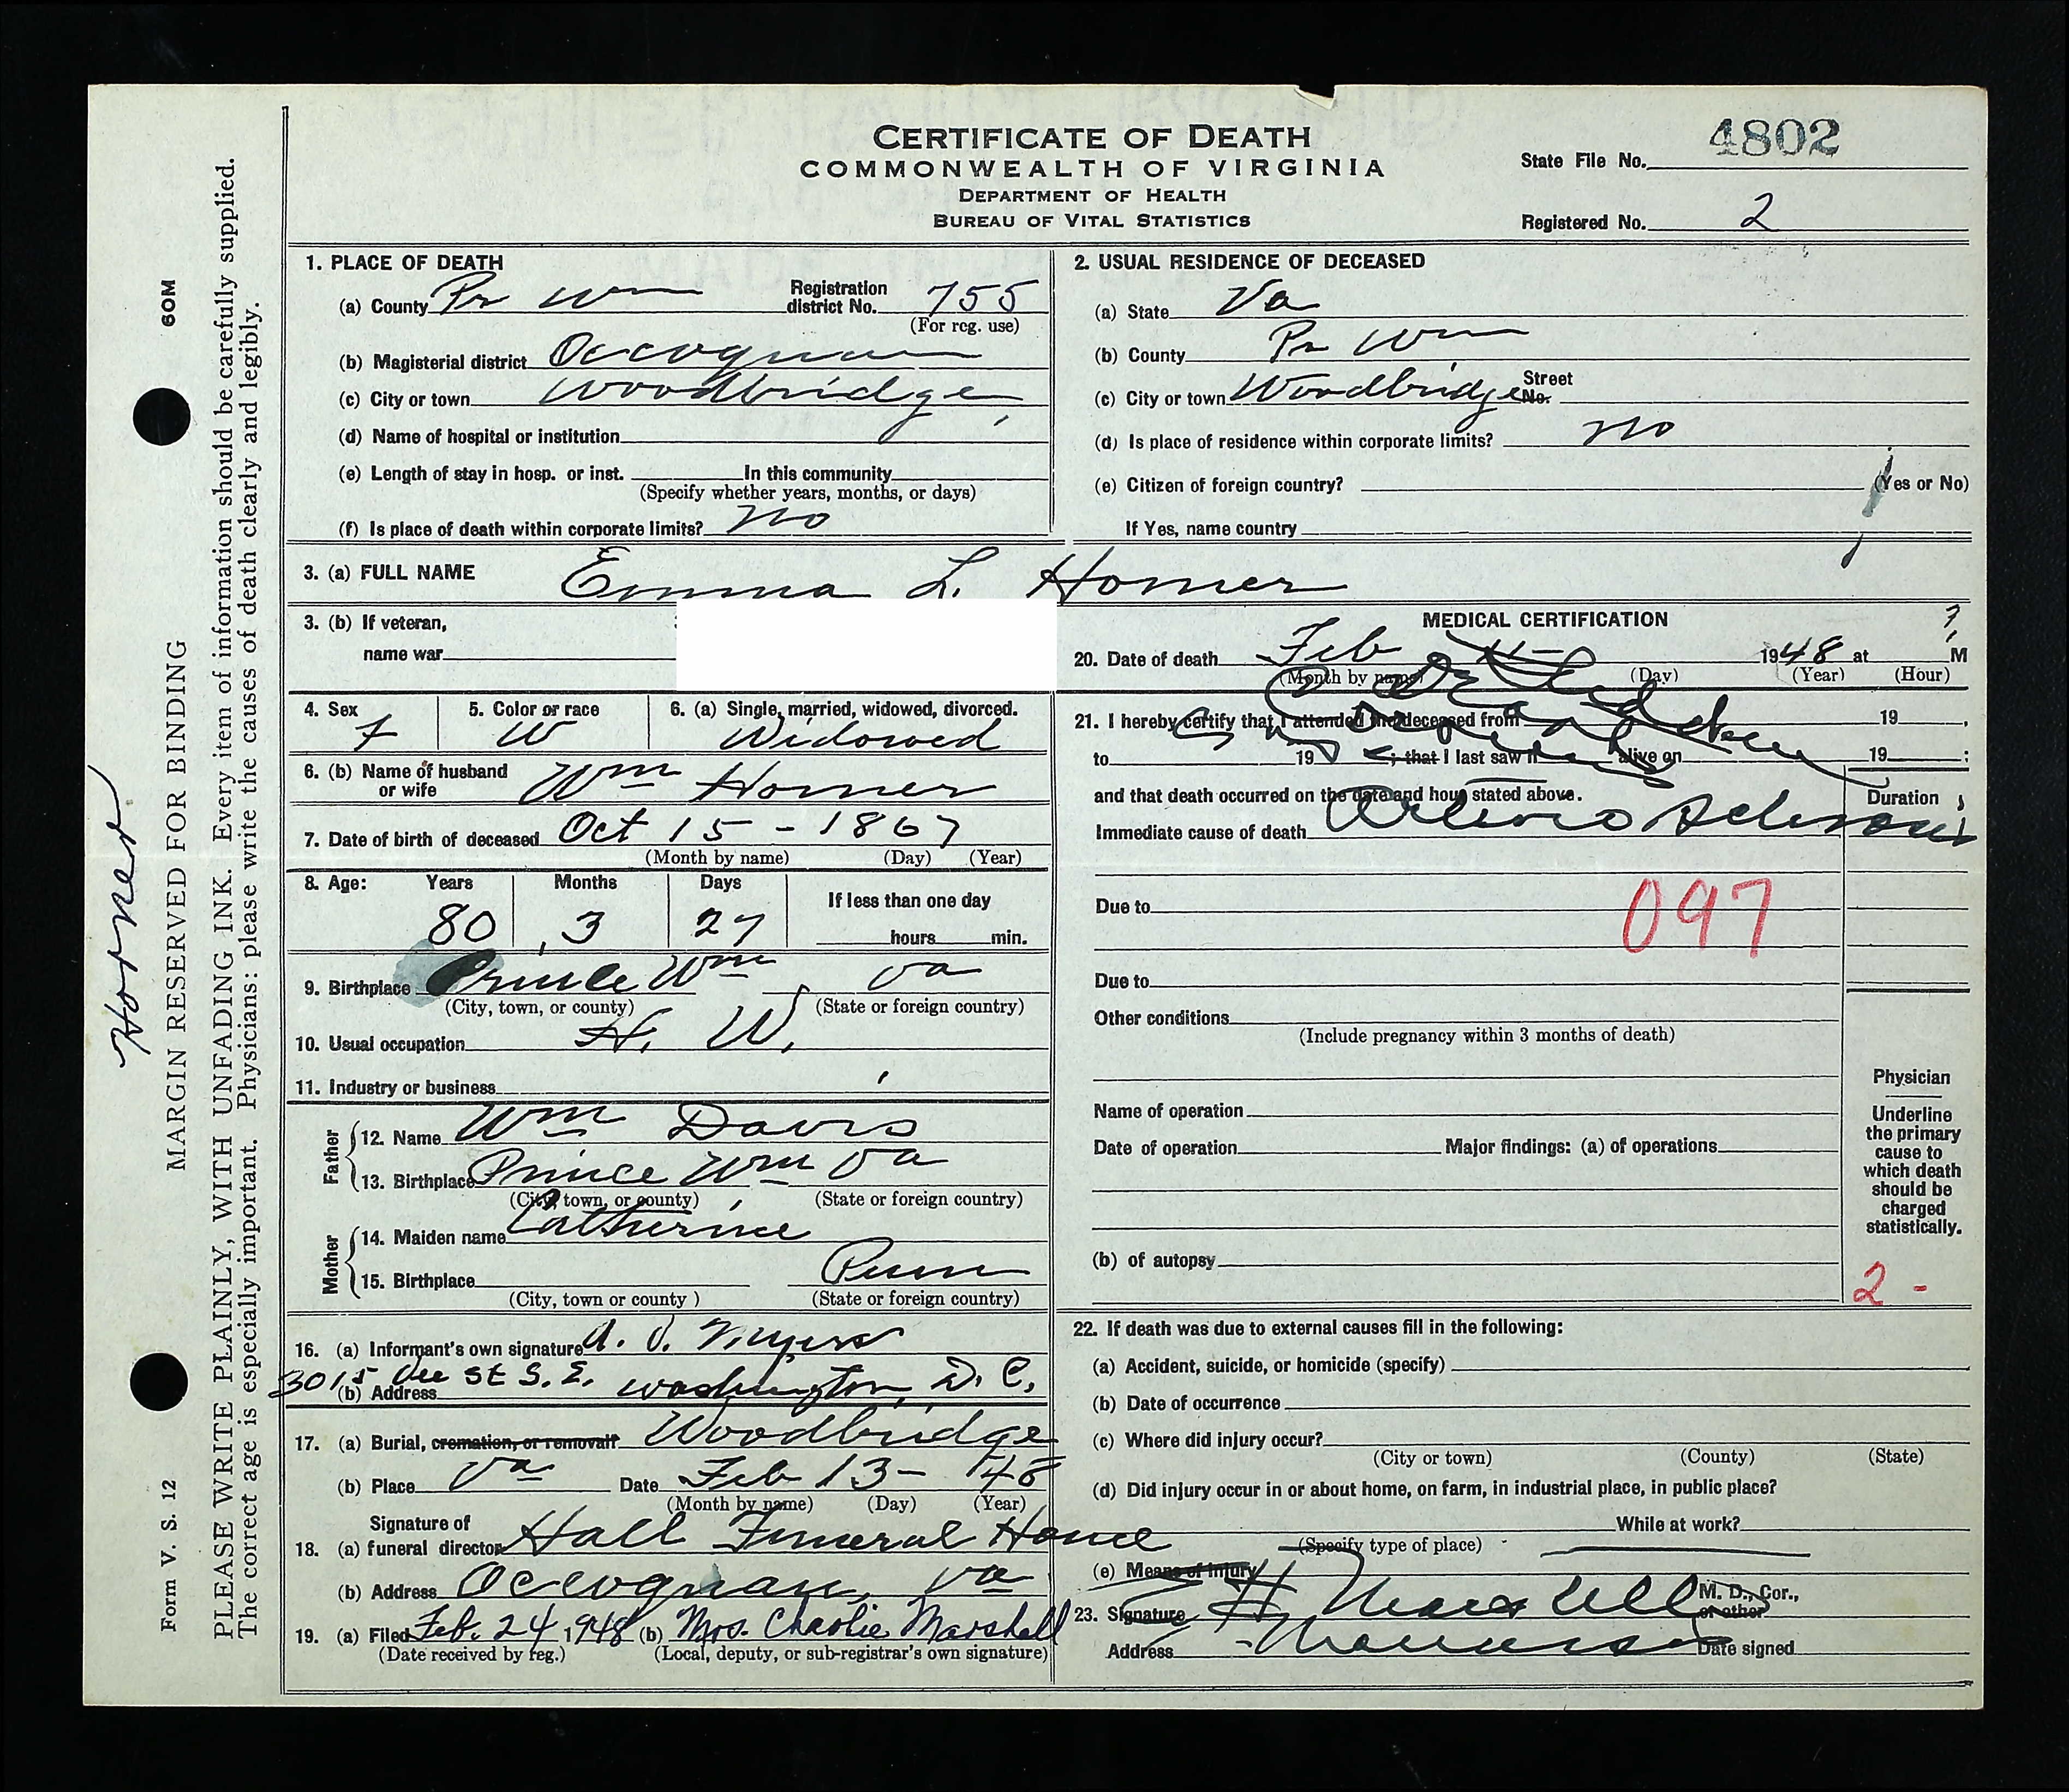 CERTIFICATE OF DEATH
COMMONWEALTH OF VIRGINIA
DEPARTMENT OF HEALTH
BUREAU OF VITAL STATISTICS
State File No. 4802
Registered No. 2
1. PLACE OF DEATH
(a) County Pr Wm Registration district No. 755
(For reg. use)
(b) Magisterial district Occoquan
(c) City or town Woodbridge
(d) Name of hospital or institution
(e) Length of stay in hosp. or inst. In this community
(Specify whether years, months, or days)
(f) Is place of death within corporate limits? no
2. USUAL RESIDENCE OF DECEASED
(a) State Va
(b) County Pr Wm
(c) City or town Woodbridge Street No.
(d) Is place of residence within corporate limits? no
(e) Citizen of foreign country? (Yes or No)
If Yes, name country
3. (a) FULL NAME Emma L. Horner
3. (b) If veteran,
name war
4. Sex 5. Color or race 6. (a) Single, married, widowed, divorced.
F W Widowed
6. (b) Name of husband or wife Wm Horner
7. Date of birth of deceased Oct 15 - 1867
(Month by name) (Day) (Year)
8. Age: Years Months Days If less than one day
80 3 27 hours min.
9. Birthplace Prince Wm Va
(City, town, or county) (State or foreign country)
10. Usual occupation H. W.
11. Industry or business
Father
12. Name Wm Davis
13. Birthplace Prince Wm Va
(City, town, or county) (State or foreign country)
Mother
14. Maiden name Catherine
15. Birthplace Penn
(City, town or county) (State or foreign country)
16. (a) Informant's own signature A. Myers
(b) Address 3015 St S. E. Washington, D. C.
17. (a) Burial, cremation, or removal? Woodbridge
(b) Place Va Date Feb 13 - 1948
(Month by name) (Day) (Year)
18. (a) Signature of funeral director Hall Funeral Home
(b) Address Occoquan, Va
19. (a) Filed Feb. 24, 1948 (b) Mrs. Charlie Marshall
(Date received by reg.) (Local, deputy, or sub-registrar's own signature)
MEDICAL CERTIFICATION
20. Date of death Feb 11 - 1948 at M
(Month by name) (Day) (Year) (Hour)
21. I hereby certify that I attended the deceased from 19 ,
to 19 ; that I last saw h alive on 19 ;
and that death occurred on the date and hour stated above. Duration
Immediate cause of death Arterio Sclerosis
Due to 097
Due to
Other conditions
(Include pregnancy within 3 months of death)
Name of operation
Date of operation Major findings: (a) of operations
(b) of autopsy
Physician
Underline
the primary
cause to
which death
should be
charged
statistically.
2 -
22. If death was due to external causes fill in the following:
(a) Accident, suicide, or homicide (specify)
(b) Date of occurrence
(c) Where did injury occur?
(City or town) (County) (State)
(d) Did injury occur in or about home, on farm, in industrial place, in public place?
While at work?
(Specify type of place)
(e) Means of injury
23. Signature E H Marsteller M. D., Cor., or other
Address Manassas Date signed
Horner
MARGIN RESERVED FOR BINDING 60M
Form V. S. 12
PLEASE WRITE PLAINLY, WITH UNFADING INK. Every item of information should be carefully supplied.
The correct age is especially important. Physicians: please write the causes of death clearly and legibly.